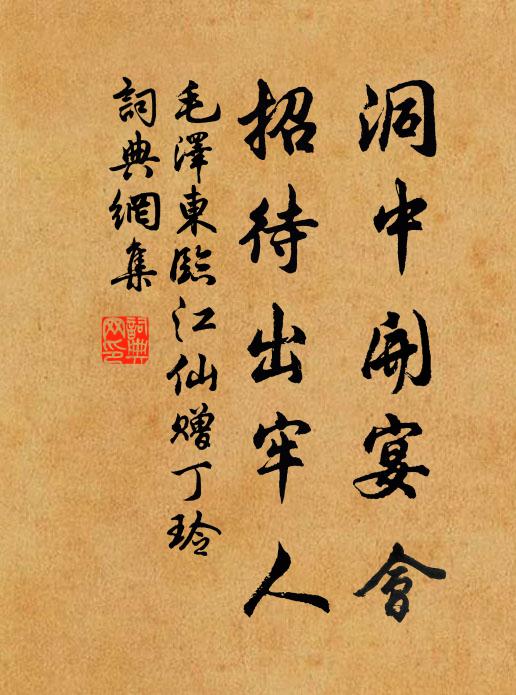 洞中開宴會
招待出牢人
毛澤東臨江仙贈丁玲
詞典網集
詞典网印